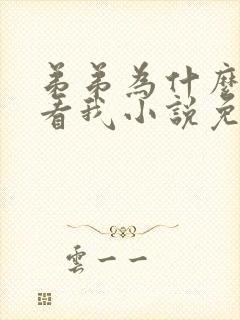 弟弟為什麼
看我小說免
雲一一